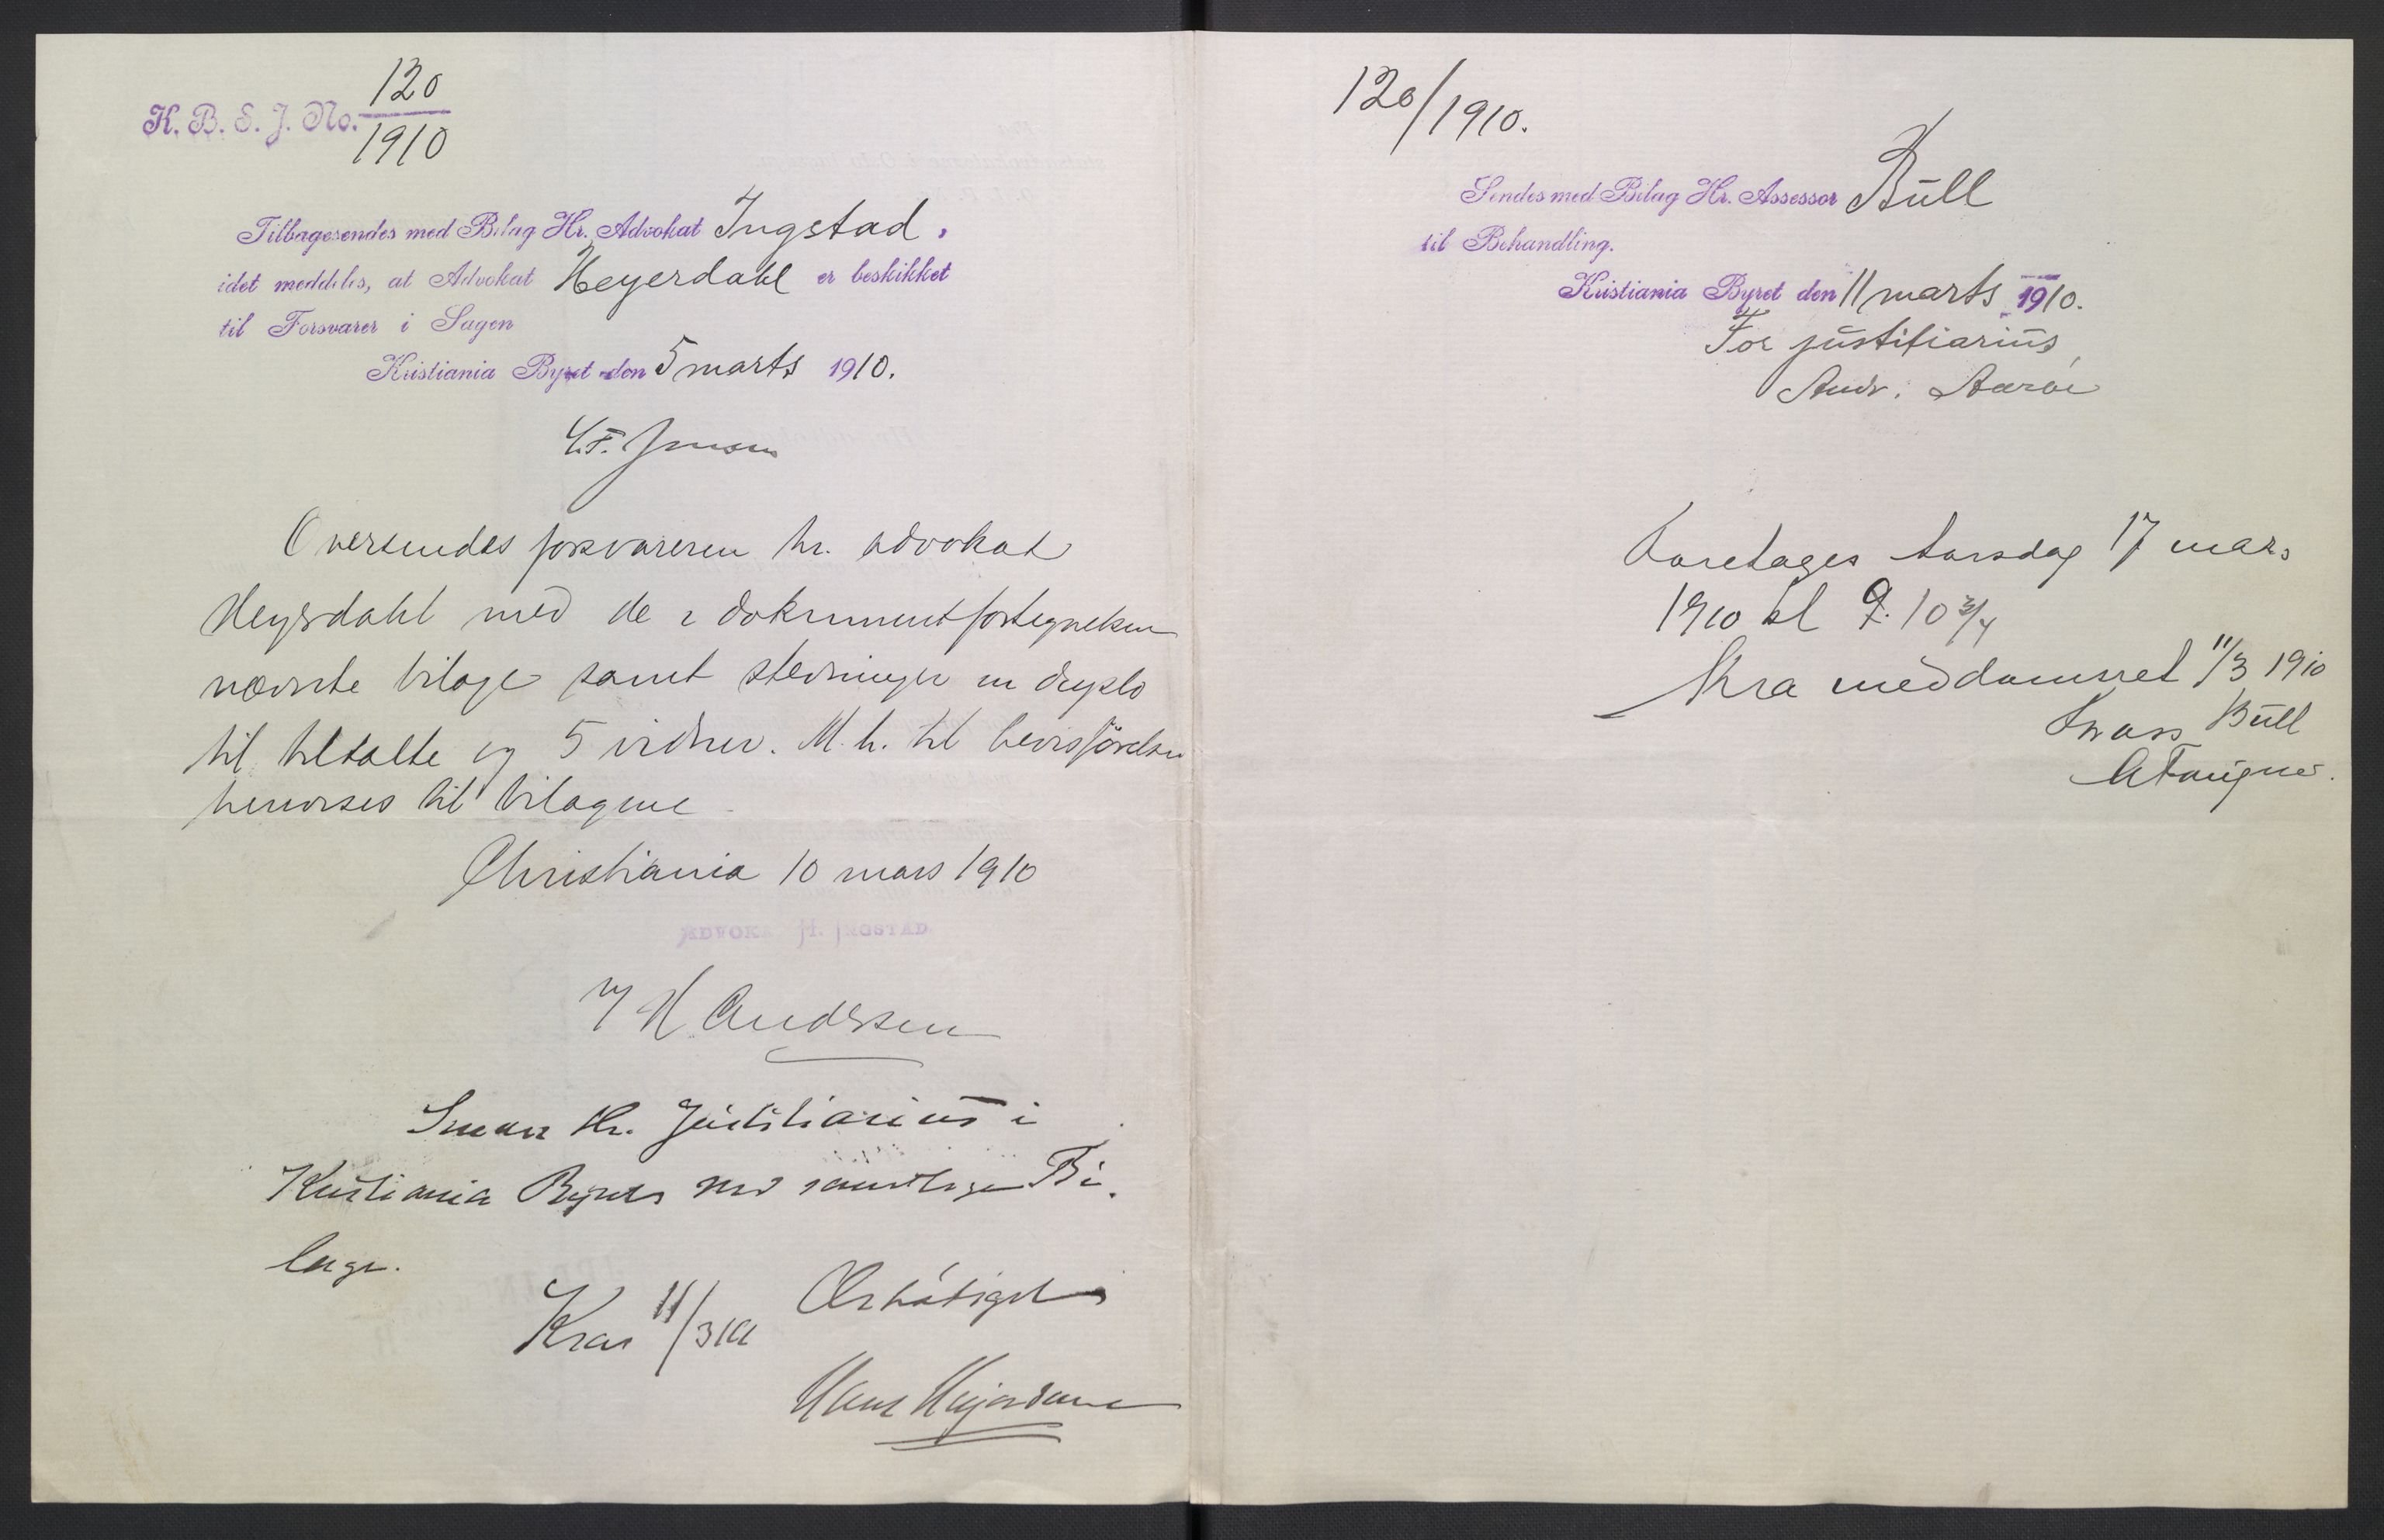 K. B. E. J. No. 120
1910
Tilbagesendes med Bilag Hr. Advokat Ingstad,
idet meddeles, at Advokat Heyerdahl er beskikket
til Forsvarer i Sagen
Kristiania Byret den 5 marts 1910.
Oversendes forsvareren hr. advokat
Heyerdahl med de i dokumentfortegnelsen
nævnte bilage samt stevninger in duplo
til tiltalte og 5 vidner. M. h. til bevisførelsen
henvises til bilagene
Christiania 10 mars 1910
ADVOKAT H. INGSTAD
H Andersen
Hr. Justitiarius i
Kristiania Byret med samtlige Bi-
lage.
Kra 11/3 10 Ærbødigst
Hans Heyerdahl
120/1910.
Sendes med Bilag Hr. Assessor Bull
til Behandling.
Kristiania Byret den 11 marts 1910.
For justitiarius
Andr. Aarøe
Foretages torsdag 17 mars
1910 kl 9. 10 3/4
Kra meddomsret 11/3 1910
Bull